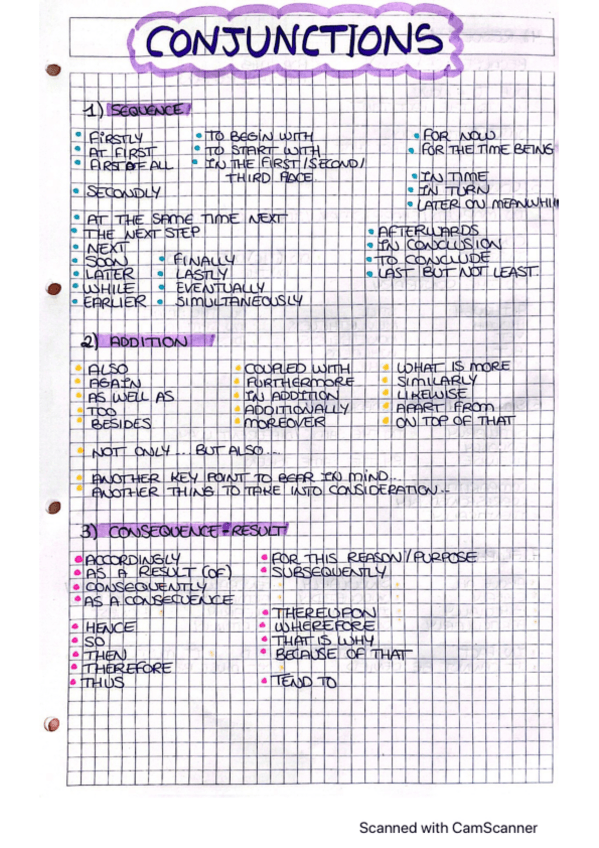 CONJUNCTIONS
1) SEQUENCE
• FIRSTLY • TO BEGIN WITH • FOR NOW
• AT FIRST • TO START WITH • FOR THE TIME BEING
• FIRST OF ALL • IN THE FIRST/SECOND/
THIRD PLACE • IN TIME
• SECONDLY • IN TURN
• LATER ON MEANWHI
• AT THE SAME TIME NEXT
• THE NEXT STEP • AFTERWARDS
• NEXT • IN CONCLUSION
• SOON • FINALLY • TO CONCLUDE
• LATER • LASTLY • LAST BUT NOT LEAST.
• WHILE • EVENTUALLY
• EARLIER • SIMULTANEOUSLY
2) ADDITION
• ALSO • COUPLED WITH • WHAT IS MORE
• AGAIN • FURTHERMORE • SIMILARLY
• AS WELL AS • IN ADDITION • LIKEWISE
• TOO • ADDITIONALLY • APART FROM
• BESIDES • MOREOVER • ON TOP OF THAT
• NOT ONLY ... BUT ALSO ...
• ANOTHER KEY POINT TO BEAR IN MIND...
• ANOTHER THING TO TAKE INTO CONSIDERATION...
3) CONSEQUENCE-RESULT
• ACCORDINGLY • FOR THIS REASON/PURPOSE
• AS A RESULT (OF) • SUBSEQUENTLY
• CONSEQUENTLY
• AS A CONSECUENCE
• THEREUPON
• HENCE • WHEREFORE
• SO • THAT IS WHY
• THEN • BECAUSE OF THAT
• THEREFORE
• THUS • TEND TO
Scanned with CamScanner